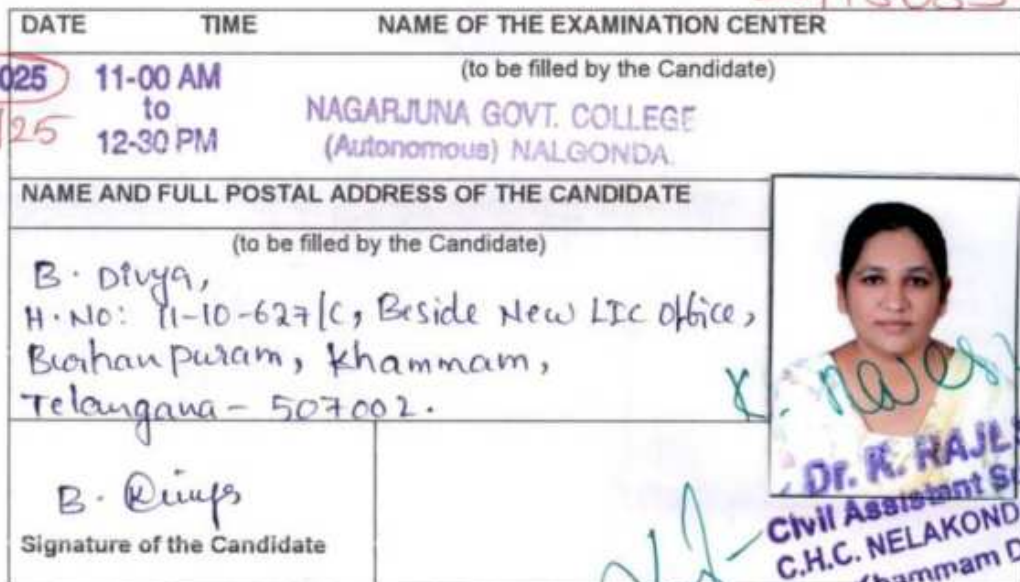 DATE TIME NAME OF THE EXAMINATION CENTER
(to be filled by the Candidate)
025 11-00 AM
to
/25 12-30 PM
NAGARJUNA GOVT. COLLEGE
(Autonomous) NALGONDA.
NAME AND FULL POSTAL ADDRESS OF THE CANDIDATE
(to be filled by the Candidate)
B. Divya,
H.NO: 11-10-627/C, Beside New LIC Office,
Burhanpuram, Khammam,
Telangana - 507002.
B.
Signature of the Candidate
Dr. K. RAJE
Civil Assistant S
C.H.C. NELAKOND
Khammam D